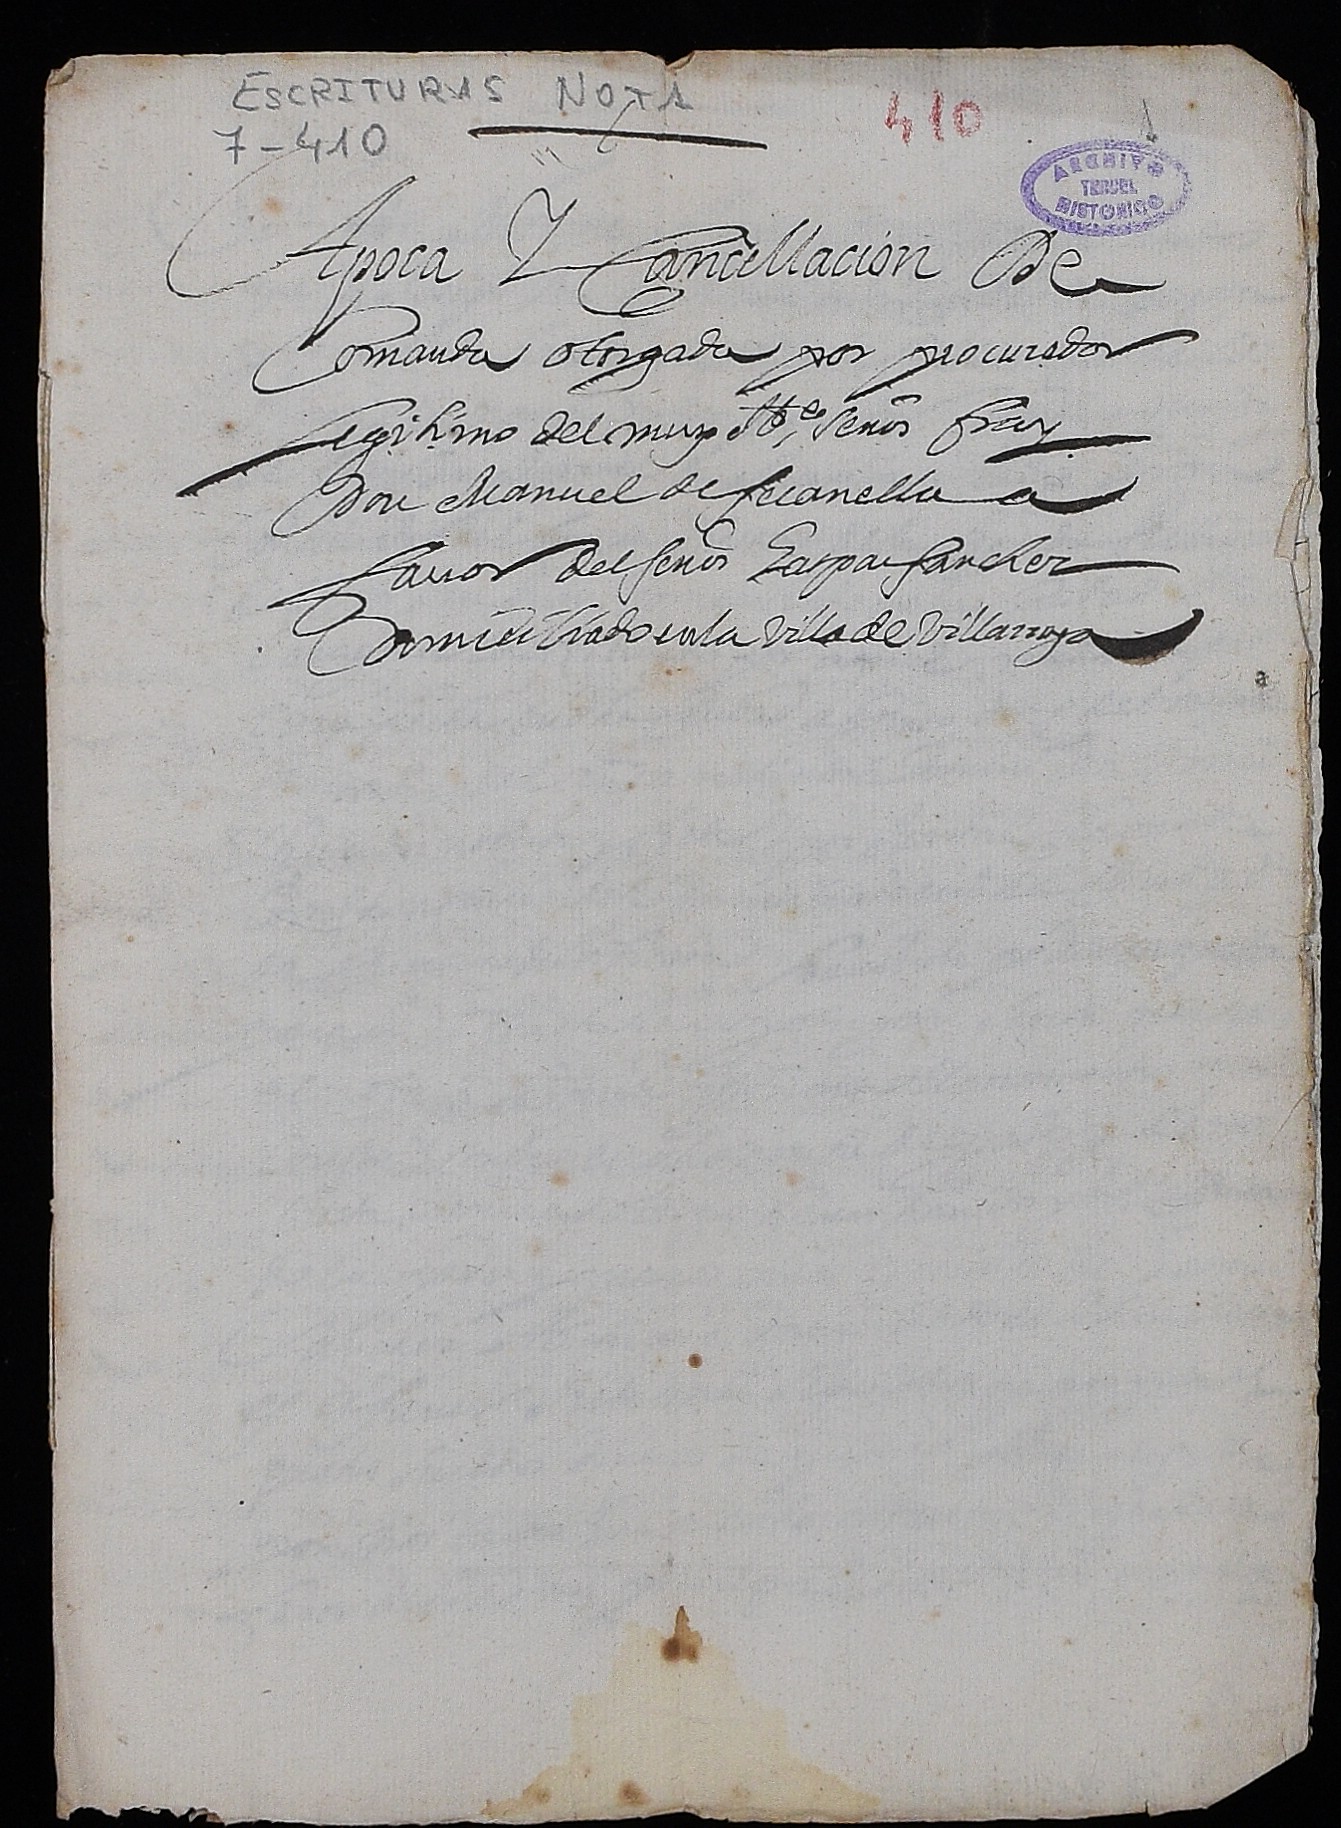 ESCRITURAS NOTA
7-410
410
ARCHIVO
TERUEL
HISTORICO
Apoca Y Cancellacion De
Comanda otorgada por procurador
legitimo del muy Ille, Senor fray
Don Manuel de secanella a
fauor del senor Gaspar sanchez
domiciliado en la villa de villarroya